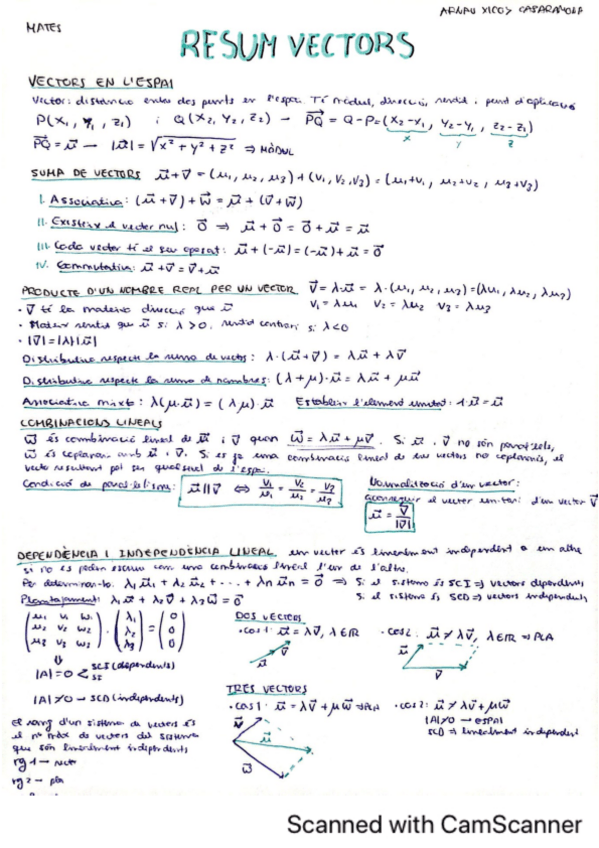 ARNAU XICOY CASARAMONA
MATES
RESUM VECTORS
VECTORS EN L'ESPAI
Vector: distància entre dos punts en l'espai. Té mòdul, direcció, sentit i punt d'aplicació
P(x₁, y₁, z₁) i Q(x₂, y₂, z₂) → PQ⃗ = Q-P = (x₂-x₁, y₂-y₁, z₂-z₁)
x y z
PQ⃗ = u⃗ → |u⃗| = √x²+y²+z² ⇒ MÒDUL
SUMA DE VECTORS u⃗+v⃗ = (u₁, u₂, u₃)+(v₁, v₂, v₃) = (u₁+v₁, u₂+v₂, u₃+v₃)
I. Associativa: (u⃗+v⃗)+w⃗ = u⃗+(v⃗+w⃗)
II. Existeix el vector nul: 0⃗ ⇒ u⃗+0⃗ = 0⃗+u⃗ = u⃗
III. Cada vector té el seu oposat: u⃗+(-u⃗) = (-u⃗)+u⃗ = 0⃗
IV. Commutativa: u⃗+v⃗ = v⃗+u⃗
PRODUCTE D'UN NOMBRE REAL PER UN VECTOR v⃗ = λ·u⃗ = λ·(u₁, u₂, u₃) = (λu₁, λu₂, λu₃)
· v⃗ té la mateixa direcció que u⃗ v₁ = λu₁ v₂ = λu₂ v₃ = λu₃
· Mateix sentit que u⃗ si λ>0, sentit contrari si λ<0
· |v⃗| = |λ||u⃗|
Distributiva respecte la suma de vectors: λ·(u⃗+v⃗) = λu⃗+λv⃗
Distributiva respecte la suma de nombres: (λ+μ)·u⃗ = λu⃗+μu⃗
Associativa mixta: λ(μ·u⃗) = (λμ)·u⃗ Establir l'element unitat: 1·u⃗ = u⃗
COMBINACIONS LINEALS
w⃗ és combinació lineal de u⃗ i v⃗ quan w⃗ = λu⃗+μv⃗. Si u⃗ i v⃗ no són paral·lels,
w⃗ és coplanari amb u⃗ i v⃗. Si es fa una combinació lineal de tres vectors no coplanaris, el
vector resultant pot ser qualsevol de l'espai.
Condició de paral·lelisme: u⃗ || v⃗ ⇔ v₁/u₁ = v₂/u₂ = v₃/u₃
Normalització d'un vector:
aconseguir el vector unitari d'un vector v⃗
u⃗ = v⃗/|v⃗|
DEPENDÈNCIA I INDEPENDÈNCIA LINEAL un vector és linealment independent a un altre
si no es poden escriure com una combinació lineal l'un de l'altre.
Per determinar-ho: λ₁u⃗₁+λ₂u⃗₂+...+λₙu⃗ₙ = 0⃗ ⇒ Si el sistema és SCI ⇒ vectors dependents
Plantejament: λ₁u⃗+λ₂v⃗+λ₃w⃗ = 0⃗ Si el sistema és SCD ⇒ vectors independents
(u₁ v₁ w₁) (λ₁) (0)
(u₂ v₂ w₂) · (λ₂) = (0)
(u₃ v₃ w₃) (λ₃) (0)
⇓
|A|=0 < SCI (dependents)
SI
|A|≠0 → SCD (independents)
El rang d'un sistema de vectors és
el nº màx de vectors del sistema
que són linealment independents
rg 1 → recta
rg 2 → pla
DOS VECTORS
· cas 1: u⃗ = λv⃗, λ∈ℝ · cas 2: u⃗ ≠ λv⃗, λ∈ℝ ⇒ PLA
u⃗ v⃗ u⃗ v⃗
TRES VECTORS
· cas 1: u⃗ = λv⃗+μw⃗ ⇒ PLA · cas 2: u⃗ ≠ λv⃗+μw⃗
|A|≠0 → ESPAI
SCD ⇒ linealment independent
v⃗
u⃗
w⃗
Scanned with CamScanner